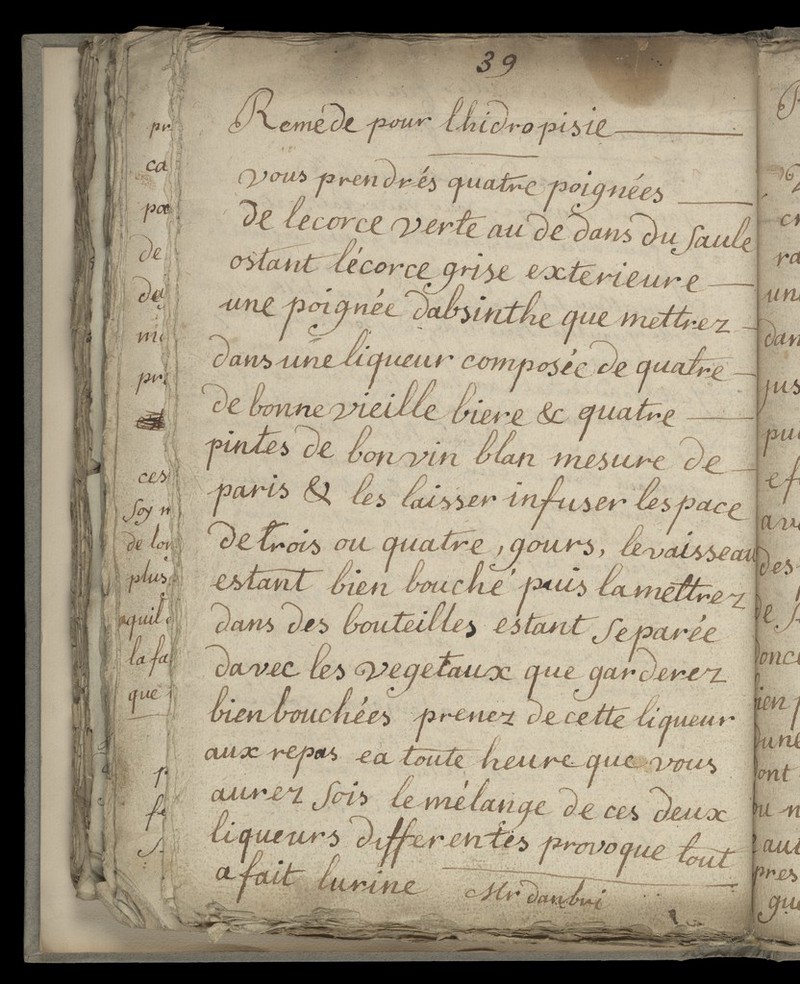 39
Remede pour lhidropisie
vous prendrés quatre poignées
de lecorce verte au de dans du saule
ostant lécorce grise exterieure
une poignée dabsinthe que mettrez
dans une liqueur composée de quatre
de bonne vieille biere & quatre
pintes de bon vin blan mesure de
paris & les laisser infuser lespace
de trois ou quatre , gours, le vaisseau
estant bien bouché puis la mettrez
dans des bouteilles estant separée
davec les vegetaux que garderez
bien bouchées prenez de cette liqueur
aux repas ea toute heure que vous
aurez sois le mélange de ces deux
liqueurs differentes provoque tout
a fait lurine Mr